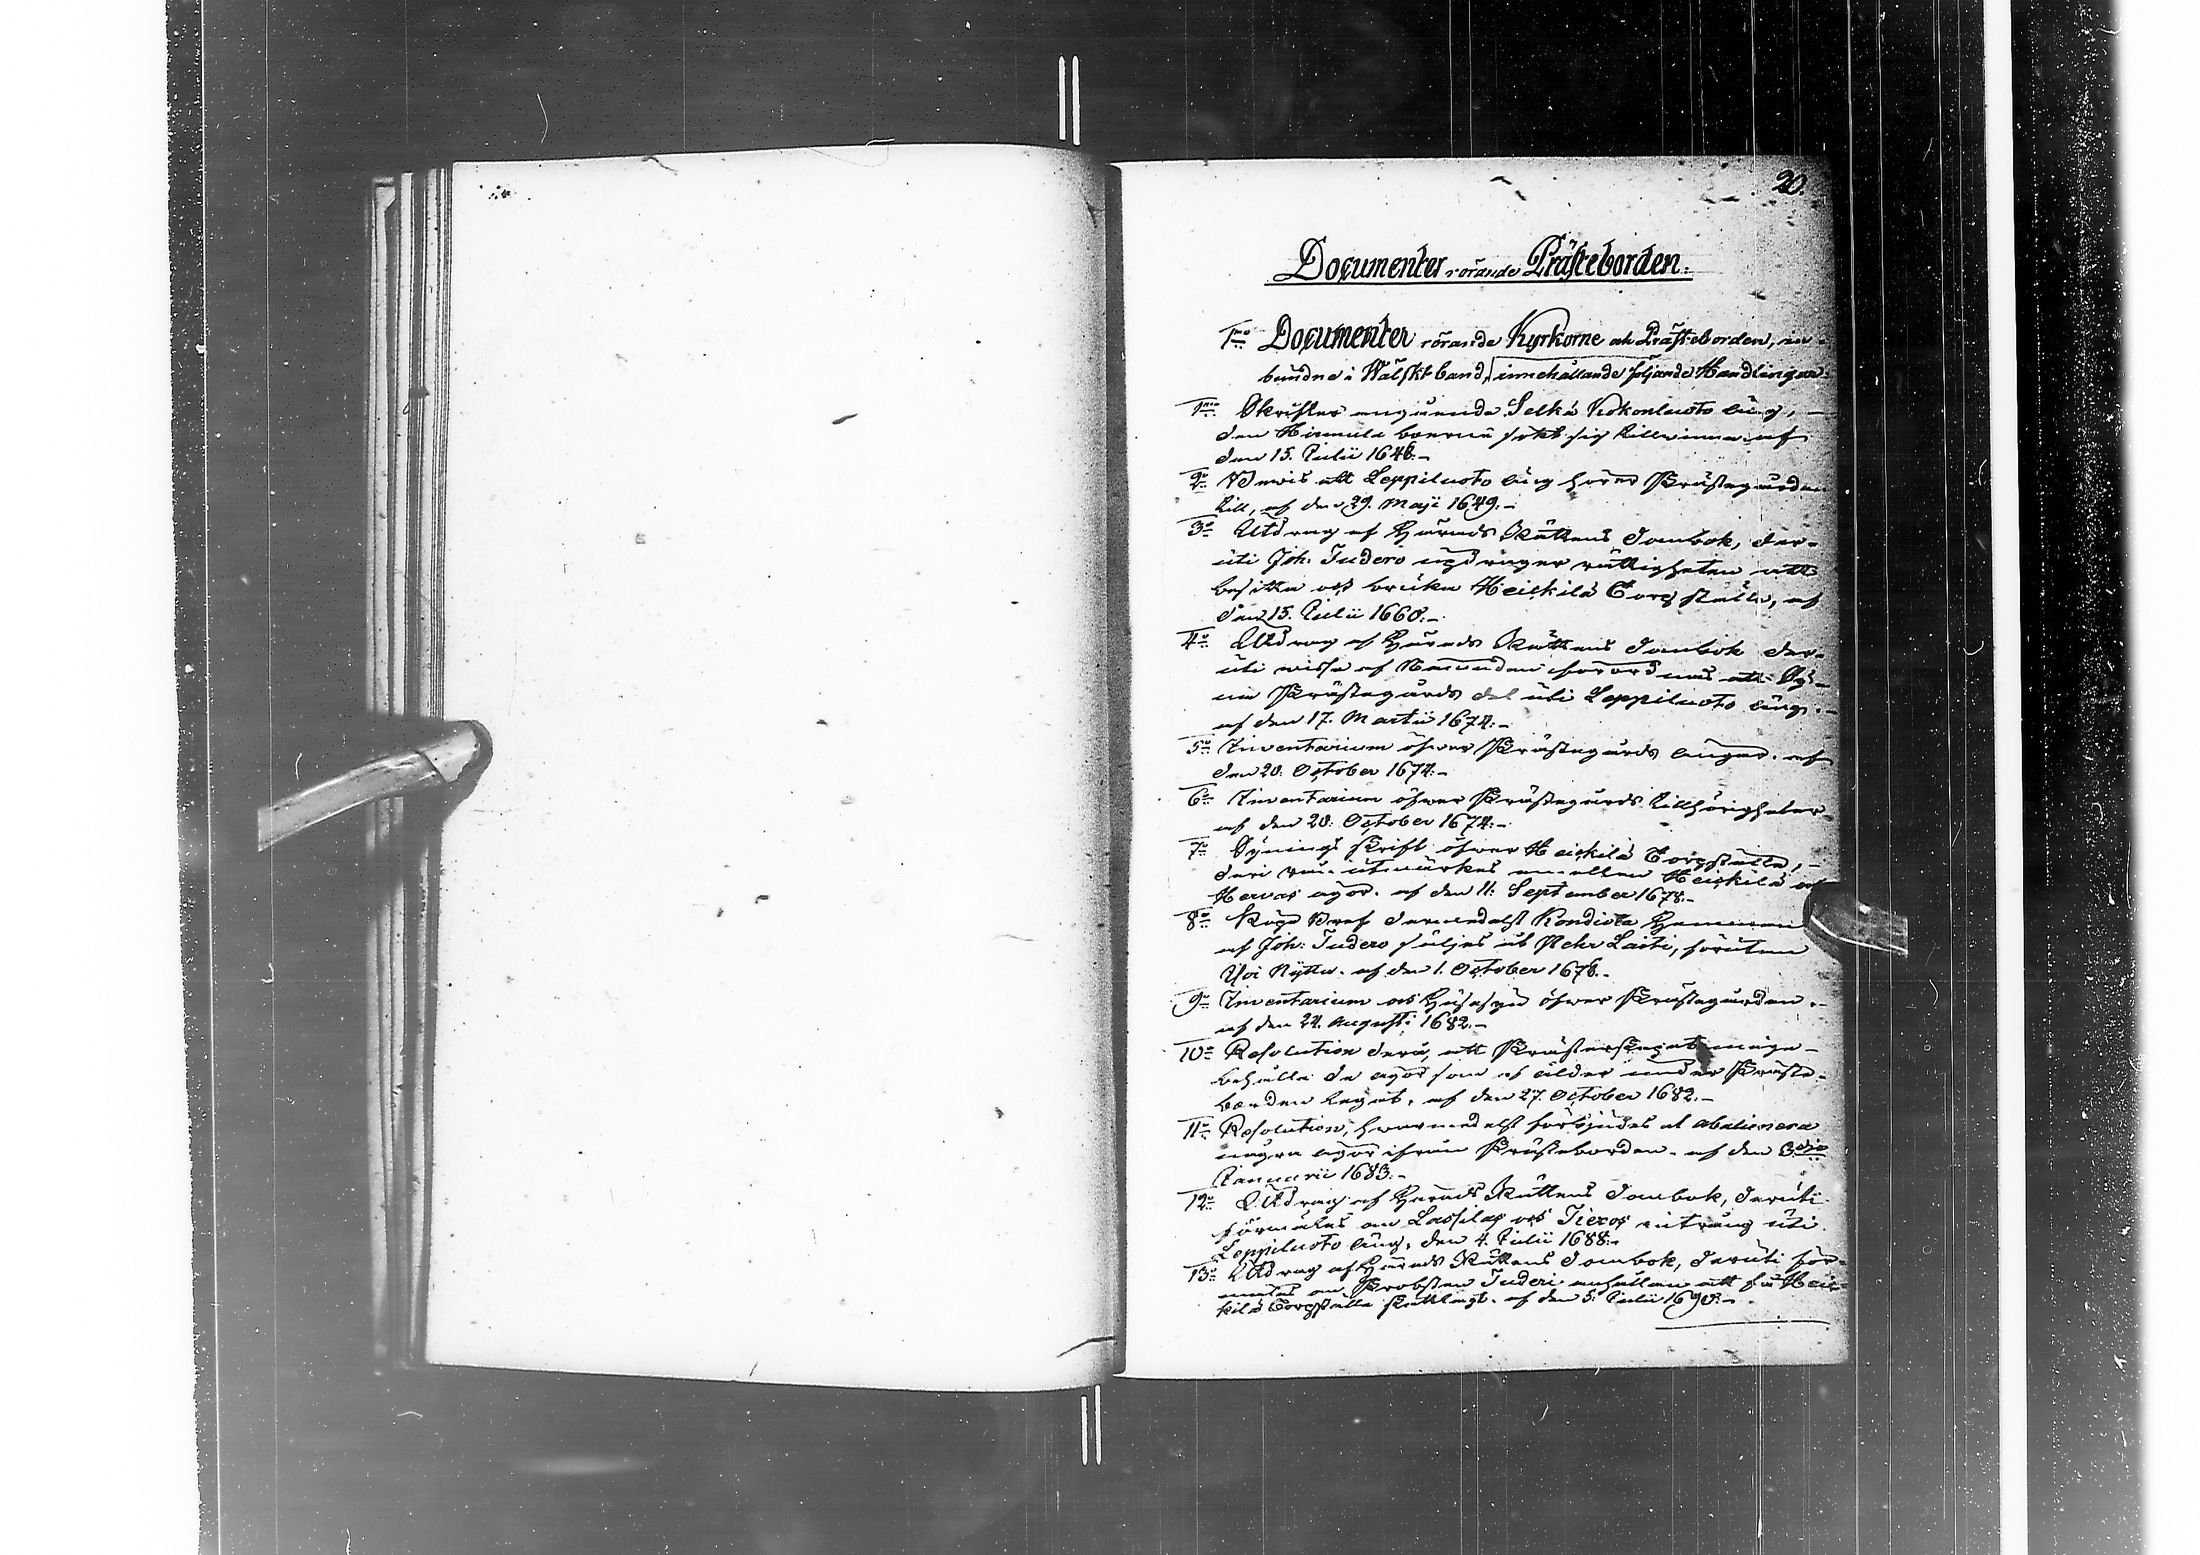 20.
Documenter rörande Prästeborden.
1mo Documenter rörande Kyrkorne ok Prästeborden, in-
bundne i Wälskt band, innehållande följande Handlingar.
1mo Skrifter angående Selkä Kokonluoto äng,
den Hirmula boerne sökt sig tillwinna af
den 15. Julii 1648.-
2o Bewis att Leppiluoto äng hörer Prästegården
till, af den 29. Maji 1649.-
3o Utdrag af Härads Rättens Dombok, der-
uti Joh. Tudero updrager rättigheten att
besitta och bruka Heickilä Torpställe, af
den 15. Julii 1660.-
4o Utdrag af Härads Rättens Dombok der-
uti wisse af Nämnden förordnas att Sy-
na Prästegårds del uti Leppiluoto äng.-
af den 17. Martii 1674.-
5o Inventarium öfwer Prästegårds ängar. af
den 20. October 1674.-
6o Inventarium öfwer Prästegårds tillhörigheter
af den 20. October 1674.-
7o Synings skrift öfwer Heickilä Torpställe,-
deri rån utmärkes emellan Heickilä och
Hervas ägor. af den 11. September 1678.-
8o Köpe Bref darmedelst Kondiola Hemman
af Joh: Tudero säljes åt Pehr Laiti, förutan
Yoi Nytta. af den 1. October 1678.-
9o Inventarium och Husesyn öfwer Prästegården.-
af den 24. Augusti 1682.-
10o Resolution derå, att Prästerskapet måge-
behålla de ägor som af ålder under Präste-
borden legat. af den 27. October 1682.-
11o Resolution, hwarmedelst förbjudes at abalienera
några ägor ifrån Prästeborden. af den 3die
Januarii 1683.-
12o Utdrag af Härads Rättens Dombok, deruti
förmäles om Lassilas och Tieros intrång uti
Leppiluoto äng, den 4. Julii 1688.-
13o Utdrag af Härads Rättens Dombok, deruti för-
mäles om Probsten Tuderi anhållan att få Heic-
kilä Torpställe skattlagt. af den 5. Julii 1690.-